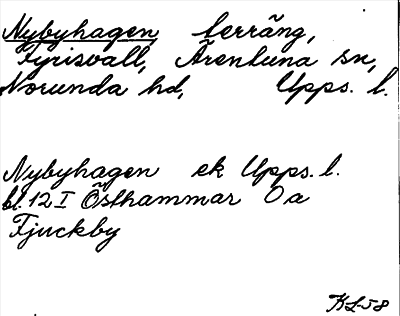 Nybyhagen terräng,
Fyrisvall, Ärentuna sn,
Norunda hd, Upps. l.
Nybyhagen ek Upps. l.
bl. 12 I Östhammar 0 a
Fjuckby
KL-58